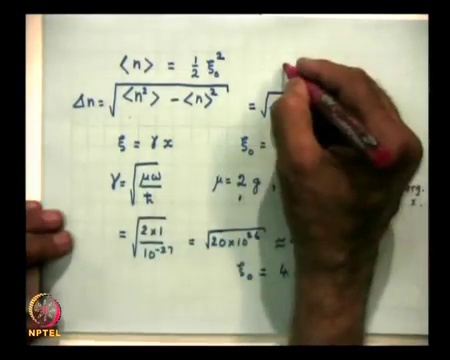 ⟨n⟩ = 1/2 ξ₀²
Δn = √(⟨n²⟩ − ⟨n⟩²) = √
ξ = γ x ξ₀ =
γ = √(μω/ħ) μ = 2 g ,
= √(2×1/10⁻²⁷) = √(20×10²⁶) ≈
ξ₀ = 4
NPTEL